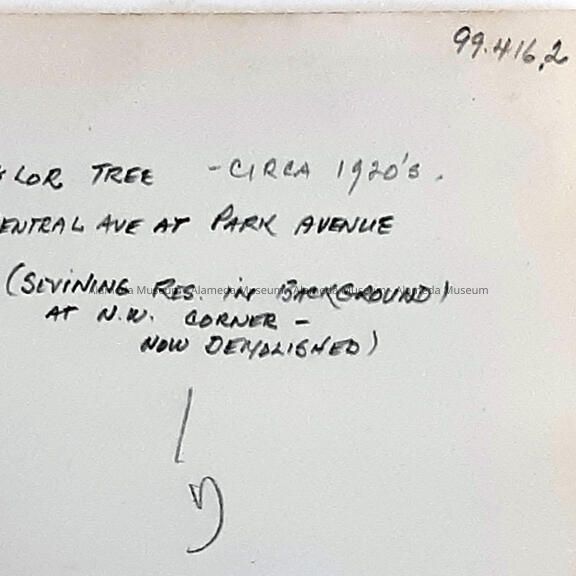 99.416.2
LOR TREE - CIRCA 1920'S.
ENTRAL AVE AT PARK AVENUE
(SIVINING RES. IN BACKGROUND)
Alameda Museum Alameda Museum Alameda Museum Alameda Museum
AT N.W. CORNER -
NOW DEMOLISHED)